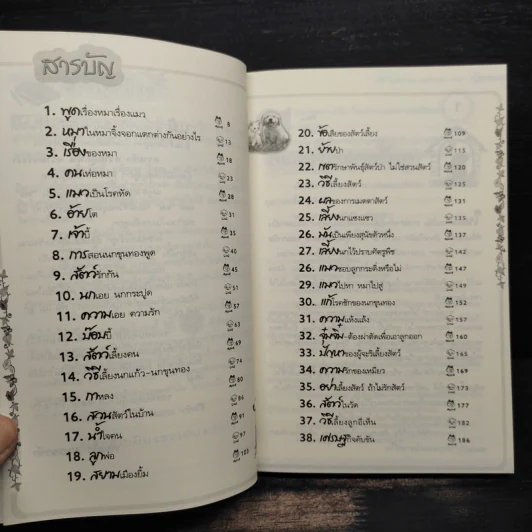 สารบัญ
1. พูดเรื่องหมาเรื่องแมว 8
2. หมาในหมาจิ้งจอกแตกต่างกันอย่างไร 13
3. เรื่องของหมา 18
4. คนเห่อหมา 23
5. แมวเป็นโรคหัด 28
6. อ้ายโต 31
7. เจ้าบี้ 35
8. การสอนนกขุนทองพูด 40
9. สัตว์รักกัน 45
10. นกเอย นกกระปูด 51
11. ความเอย ความรัก 57
12. บ๊อบบี้ 63
13. สัตว์เลี้ยงคน 69
14. วิธีเลี้ยงนกแก้ว-นกขุนทอง 74
15. กาหลง 80
16. สวนสัตว์ในบ้าน 91
17. น้ำใจคน 97
18. ลูกพ่อ 103
19. สยามเมืองยิ้ม
20. ข้อเสียของสัตว์เลี้ยง 109
21. ย้ายป่า 115
22. เขตรักษาพันธุ์สัตว์ป่า ไม่ใช่สวนสัตว์ 120
23. วิธีเลี้ยงสัตว์ 125
24. ผลของการเมตตาสัตว์ 131
25. เลี้ยงนกแซงแซว 135
26. มันเป็นเพียงสุนัขตัวหนึ่ง 137
27. เลี้ยงนกไว้ปราบศัตรูพืช 142
28. แมวชอบลูกกระดิ่งหรือไม่ 147
29. แมวไปหา หมาไปสู่ 149
30. แก้โรคชักของนกขุนทอง 152
31. ความแห้งแล้ง 157
32. จุ๋มจิ๋ม-ต้องผ่าตัดเพื่อเอาลูกออก 160
33. ปัญหาของผู้จะริเลี้ยงสัตว์ 165
34. ความรักของเหมียว 169
35. อย่าเลี้ยงสัตว์ ถ้าไม่รักสัตว์ 173
36. สัตว์ในวัด 177
37. วิธีเลี้ยงลูกอีเห็น 182
38. เศรษฐกิจคับขัน 186